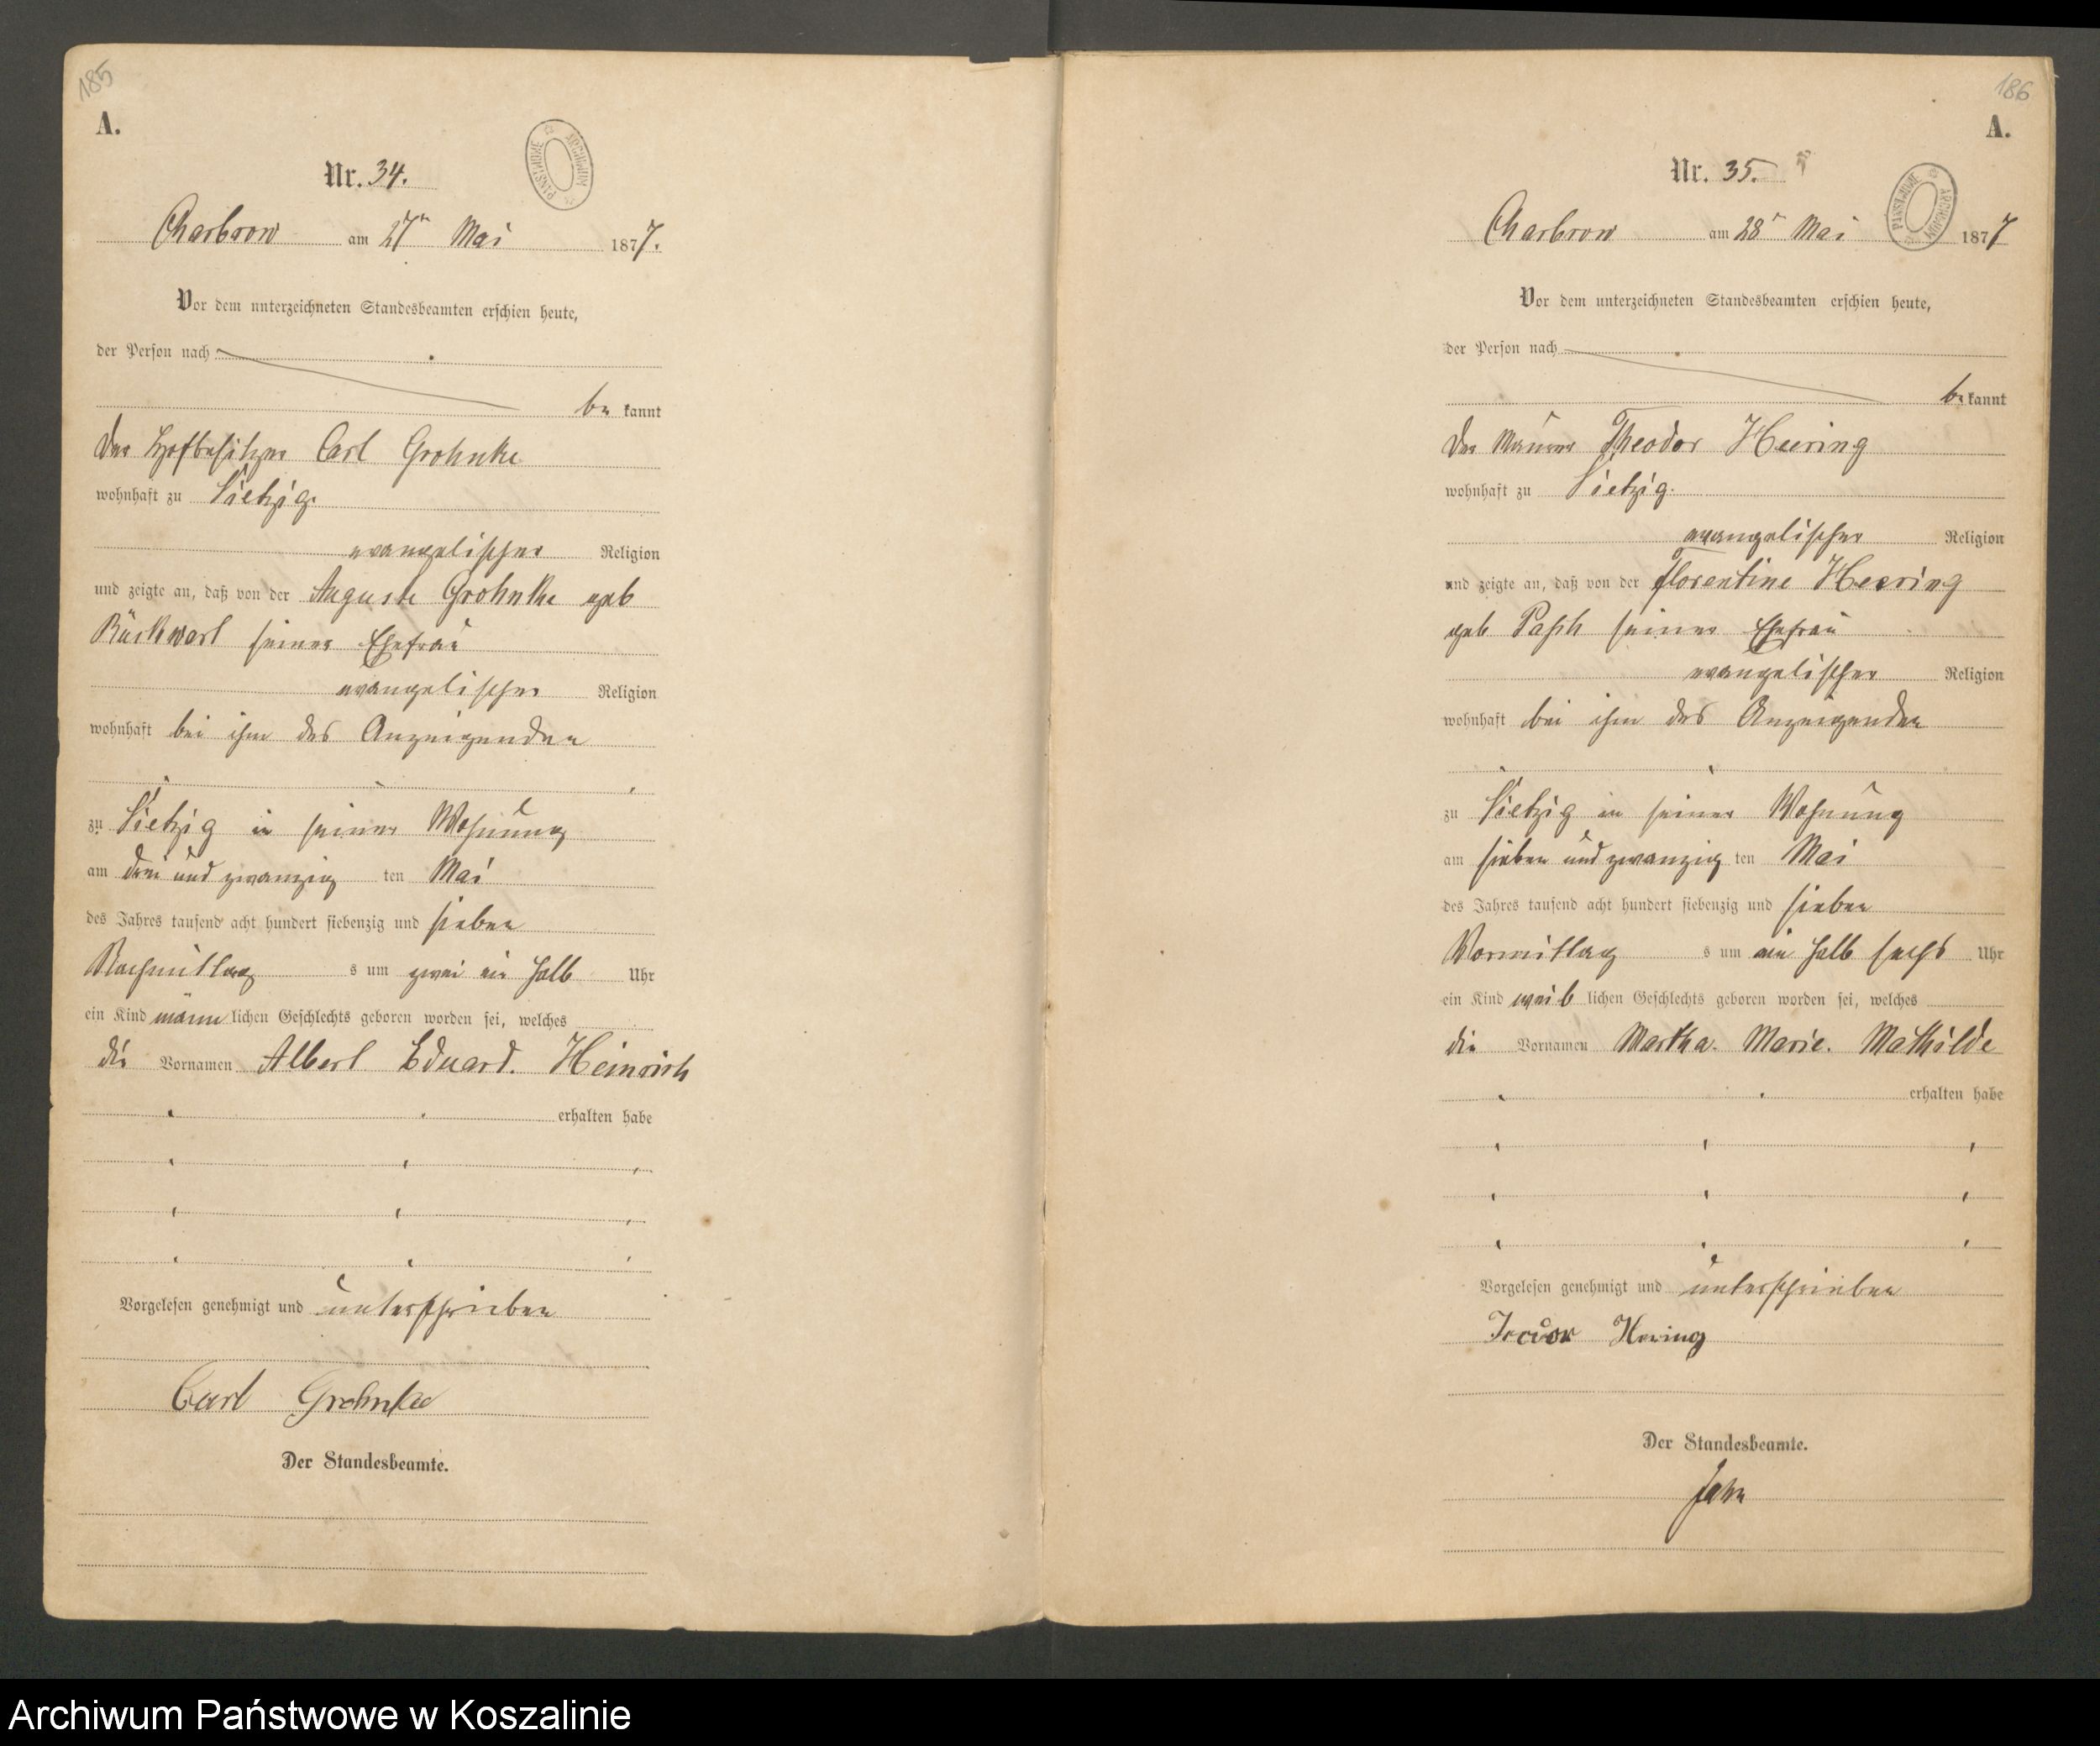 185
A.
Nr. 34.
ARCHIWUM PAŃSTWOWE
Charbrow am 27n Mai 1877.
Vor dem unterzeichneten Standesbeamten erschien heute,
der Person nach
be kannt
Der Hofbesitzer Carl Grohnke
wohnhaft zu Sietzig.
evangelischer Religion
und zeigte an, daß von der Auguste Grohnke geb
Rückwart seiner Ehefrau
evangelischer Religion
wohnhaft bei ihm des Anzeigenden
zu Sietzig in seiner Wohnung
am drei und zwanzig ten Mai
des Jahres tausend acht hundert siebenzig und sieben
Nachmittag s um zwei ein halb Uhr
ein Kind männ lichen Geschlechts geboren worden sei, welches
die Vornamen Albert. Eduard. Heinrich
erhalten habe
Vorgelesen genehmigt und unterschrieben
Carl Grohnke
Der Standesbeamte.
186
A.
Nr. 35.
ARCHIWUM PAŃSTWOWE
Charbrow am 28n Mai 1877
Vor dem unterzeichneten Standesbeamten erschien heute,
der Person nach
be kannt
Der Maurer Theodor Heering
wohnhaft zu Sietzig.
evangelischer Religion
und zeigte an, daß von der Florentine Heering
geb Pasch seiner Ehefrau
evangelischer Religion
wohnhaft bei ihm des Anzeigenden
zu Sietzig in seiner Wohnung
am sieben und zwanzig ten Mai
des Jahres tausend acht hundert siebenzig und sieben
Vormittag s um ein halb sechs Uhr
ein Kind weib lichen Geschlechts geboren worden sei, welches
die Vornamen Martha. Marie. Mathilde
erhalten habe
Vorgelesen genehmigt und unterschrieben
Hering
Der Standesbeamte.
Jahn
Archiwum Państwowe w Koszalinie